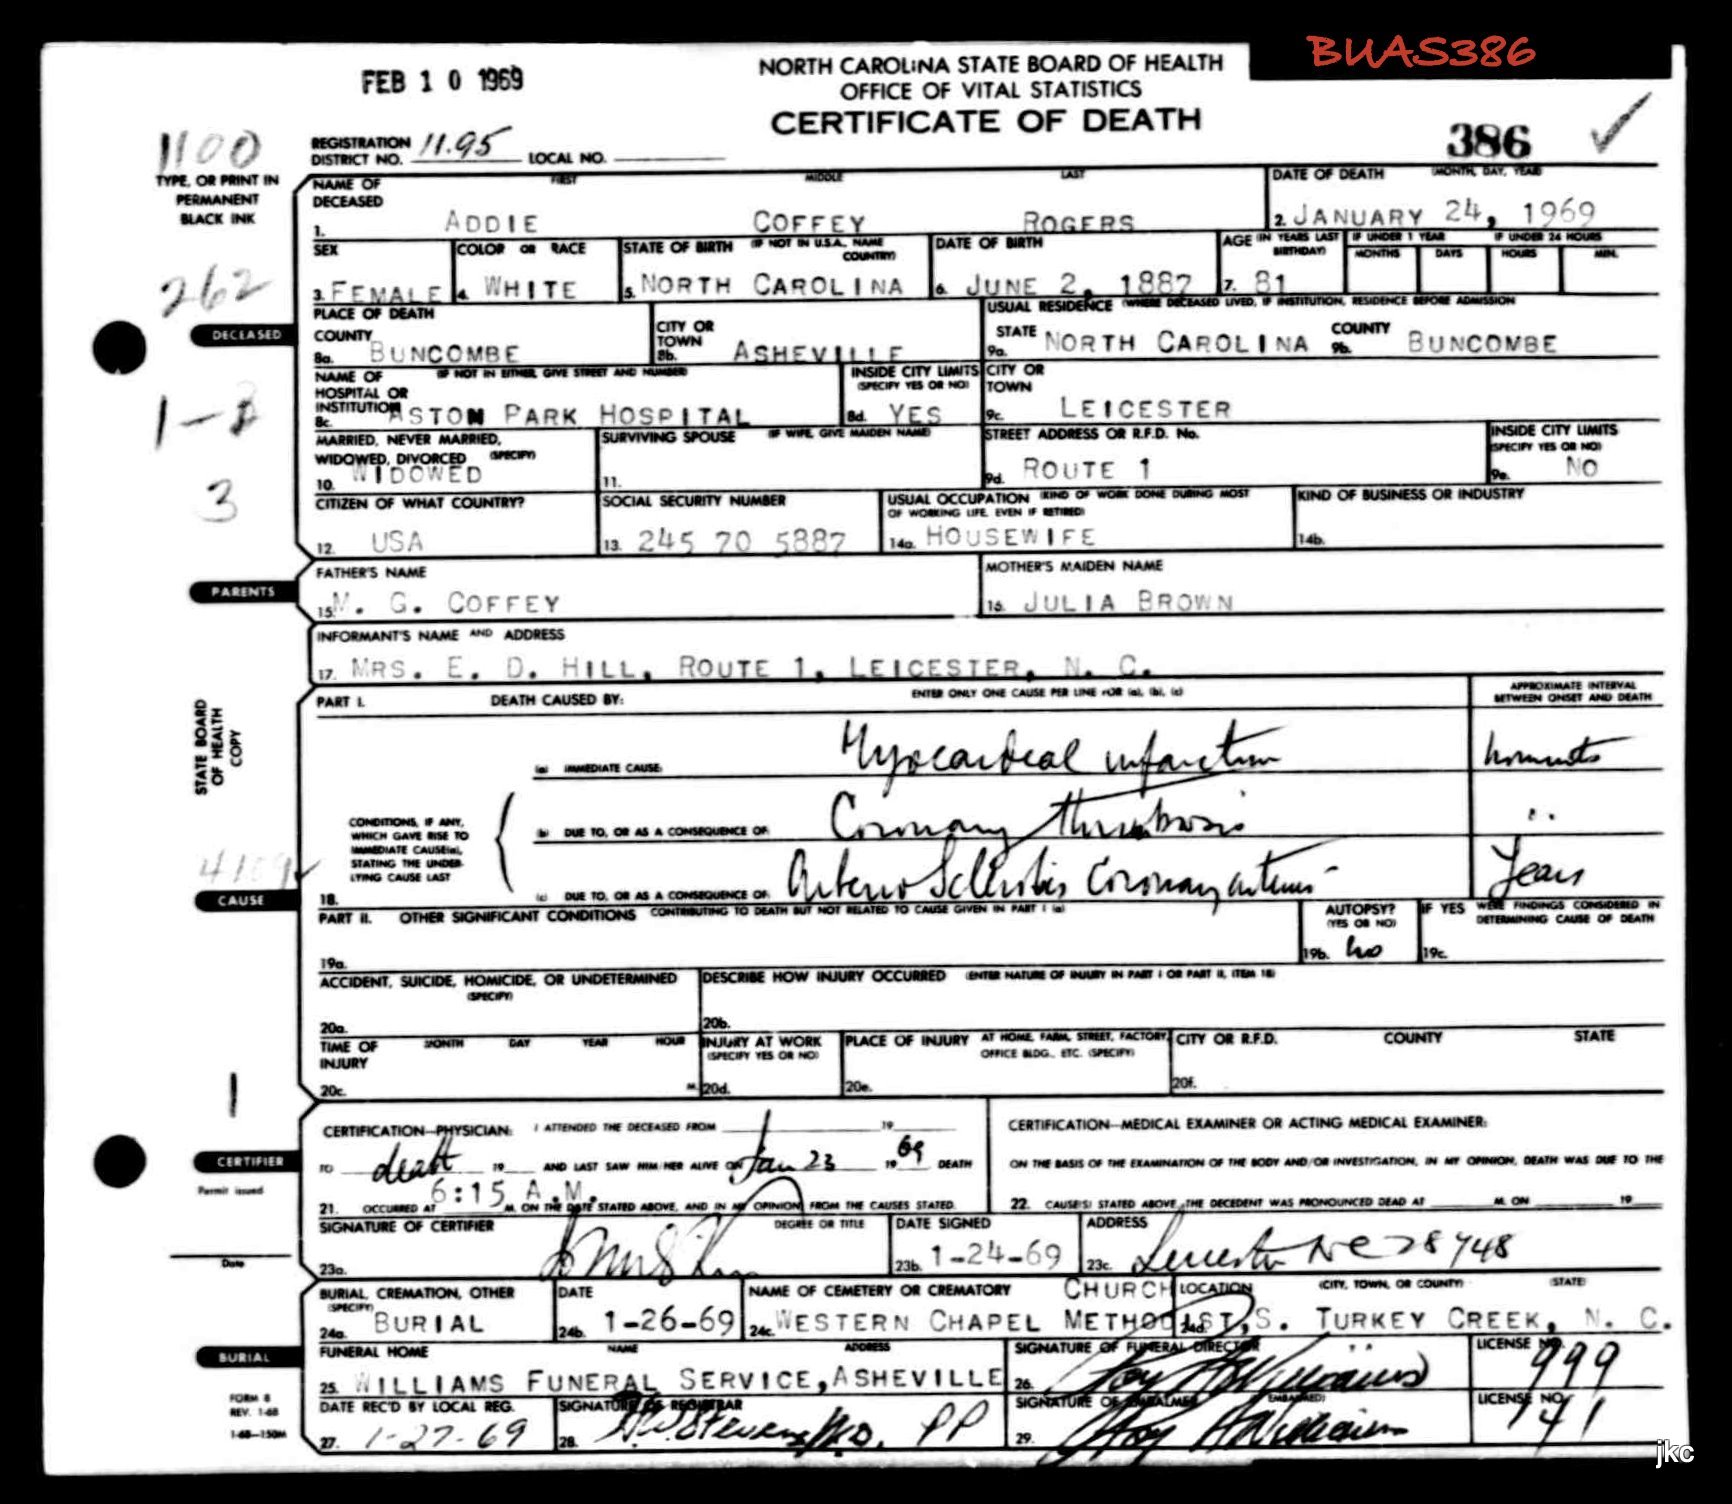 BUAS386
FEB 10 1969
NORTH CAROLINA STATE BOARD OF HEALTH
OFFICE OF VITAL STATISTICS
CERTIFICATE OF DEATH
386
1100
REGISTRATION DISTRICT NO. 11.95 LOCAL NO.
TYPE, OR PRINT IN
PERMANENT
BLACK INK
NAME OF DECEASED FIRST MIDDLE LAST
1. ADDIE COFFEY ROGERS
DATE OF DEATH (MONTH, DAY, YEAR)
2. JANUARY 24, 1969
SEX
3. FEMALE
COLOR OR RACE
4. WHITE
STATE OF BIRTH (IF NOT IN U.S.A., NAME COUNTRY)
5. NORTH CAROLINA
DATE OF BIRTH
6. JUNE 2, 1887
AGE (IN YEARS LAST BIRTHDAY)
7. 81
IF UNDER 1 YEAR
MONTHS DAYS
IF UNDER 24 HOURS
HOURS MIN.
262
DECEASED
PLACE OF DEATH
COUNTY
8a. BUNCOMBE
CITY OR TOWN
8b. ASHEVILLE
USUAL RESIDENCE (WHERE DECEASED LIVED, IF INSTITUTION, RESIDENCE BEFORE ADMISSION
STATE
9a. NORTH CAROLINA
COUNTY
9b. BUNCOMBE
NAME OF HOSPITAL OR INSTITUTION (IF NOT IN EITHER, GIVE STREET AND NUMBER)
8c. ASTON PARK HOSPITAL
INSIDE CITY LIMITS (SPECIFY YES OR NO)
8d. YES
CITY OR TOWN
9c. LEICESTER
MARRIED, NEVER MARRIED, WIDOWED, DIVORCED (SPECIFY)
10. WIDOWED
SURVIVING SPOUSE (IF WIFE, GIVE MAIDEN NAME)
11.
STREET ADDRESS OR R.F.D. No.
9d. ROUTE 1
INSIDE CITY LIMITS (SPECIFY YES OR NO)
9e. NO
3
CITIZEN OF WHAT COUNTRY?
12. USA
SOCIAL SECURITY NUMBER
13. 245 70 5887
USUAL OCCUPATION (KIND OF WORK DONE DURING MOST OF WORKING LIFE, EVEN IF RETIRED)
14a. HOUSEWIFE
KIND OF BUSINESS OR INDUSTRY
14b.
PARENTS
FATHER'S NAME
15. M. G. COFFEY
MOTHER'S MAIDEN NAME
16. JULIA BROWN
INFORMANT'S NAME AND ADDRESS
17. MRS. E. D. HILL, ROUTE 1, LEICESTER, N. C.
STATE BOARD
OF HEALTH
COPY
PART I. DEATH CAUSED BY: ENTER ONLY ONE CAUSE PER LINE FOR (a), (b), (c)
APPROXIMATE INTERVAL BETWEEN ONSET AND DEATH
(a) IMMEDIATE CAUSE: Myocardial infarction moments
CONDITIONS, IF ANY,
WHICH GAVE RISE TO
IMMEDIATE CAUSE(a),
STATING THE UNDER-
LYING CAUSE LAST
(b) DUE TO, OR AS A CONSEQUENCE OF: Coronary Thrombosis "
18. (c) DUE TO, OR AS A CONSEQUENCE OF: Arterio Sclerotic Coronary arteries Years
CAUSE
PART II. OTHER SIGNIFICANT CONDITIONS CONTRIBUTING TO DEATH BUT NOT RELATED TO CAUSE GIVEN IN PART I (a)
19a.
AUTOPSY? (YES OR NO)
19b. no
IF YES WERE FINDINGS CONSIDERED IN DETERMINING CAUSE OF DEATH
19c.
ACCIDENT, SUICIDE, HOMICIDE, OR UNDETERMINED (SPECIFY)
20a.
DESCRIBE HOW INJURY OCCURRED (ENTER NATURE OF INJURY IN PART I OR PART II, ITEM 18)
20b.
TIME OF INJURY MONTH DAY YEAR HOUR
20c. M.
INJURY AT WORK (SPECIFY YES OR NO)
20d.
PLACE OF INJURY AT HOME, FARM, STREET, FACTORY, OFFICE BLDG., ETC. (SPECIFY)
20e.
CITY OR R.F.D. COUNTY STATE
20f.
1
CERTIFIER
Permit issued
Date
CERTIFICATION—PHYSICIAN: I ATTENDED THE DECEASED FROM 19
TO death 19 AND LAST SAW HIM/HER ALIVE ON Jan 23 19 69 DEATH
21. OCCURRED AT 6:15 A.M. M. ON THE DATE STATED ABOVE, AND IN MY OPINION FROM THE CAUSES STATED.
CERTIFICATION—MEDICAL EXAMINER OR ACTING MEDICAL EXAMINER:
ON THE BASIS OF THE EXAMINATION OF THE BODY AND/OR INVESTIGATION, IN MY OPINION, DEATH WAS DUE TO THE
22. CAUSE(S) STATED ABOVE, THE DECEDENT WAS PRONOUNCED DEAD AT M. ON 19
SIGNATURE OF CERTIFIER DEGREE OR TITLE
23a.
DATE SIGNED
23b. 1-24-69
ADDRESS
23c. Leicester NC 28748
BURIAL, CREMATION, OTHER (SPECIFY)
24a. BURIAL
DATE
24b. 1-26-69
NAME OF CEMETERY OR CREMATORY CHURCH
24c. WESTERN CHAPEL METHODIST,
LOCATION (CITY, TOWN, OR COUNTY) (STATE)
24d. S. TURKEY CREEK, N. C.
BURIAL
FUNERAL HOME NAME ADDRESS
25. WILLIAMS FUNERAL SERVICE, ASHEVILLE
SIGNATURE OF FUNERAL DIRECTOR
26. Roy A Williams
LICENSE NO.
999
FORM 8
REV. 1-68
1-68—150M
DATE REC'D BY LOCAL REG.
27. 1-27-69
SIGNATURE OF REGISTRAR
28. H.W. Stevens M.D. PP
SIGNATURE OF EMBALMER (IF EMBALMED)
29. Roy A Williams
LICENSE NO.
141
jkc